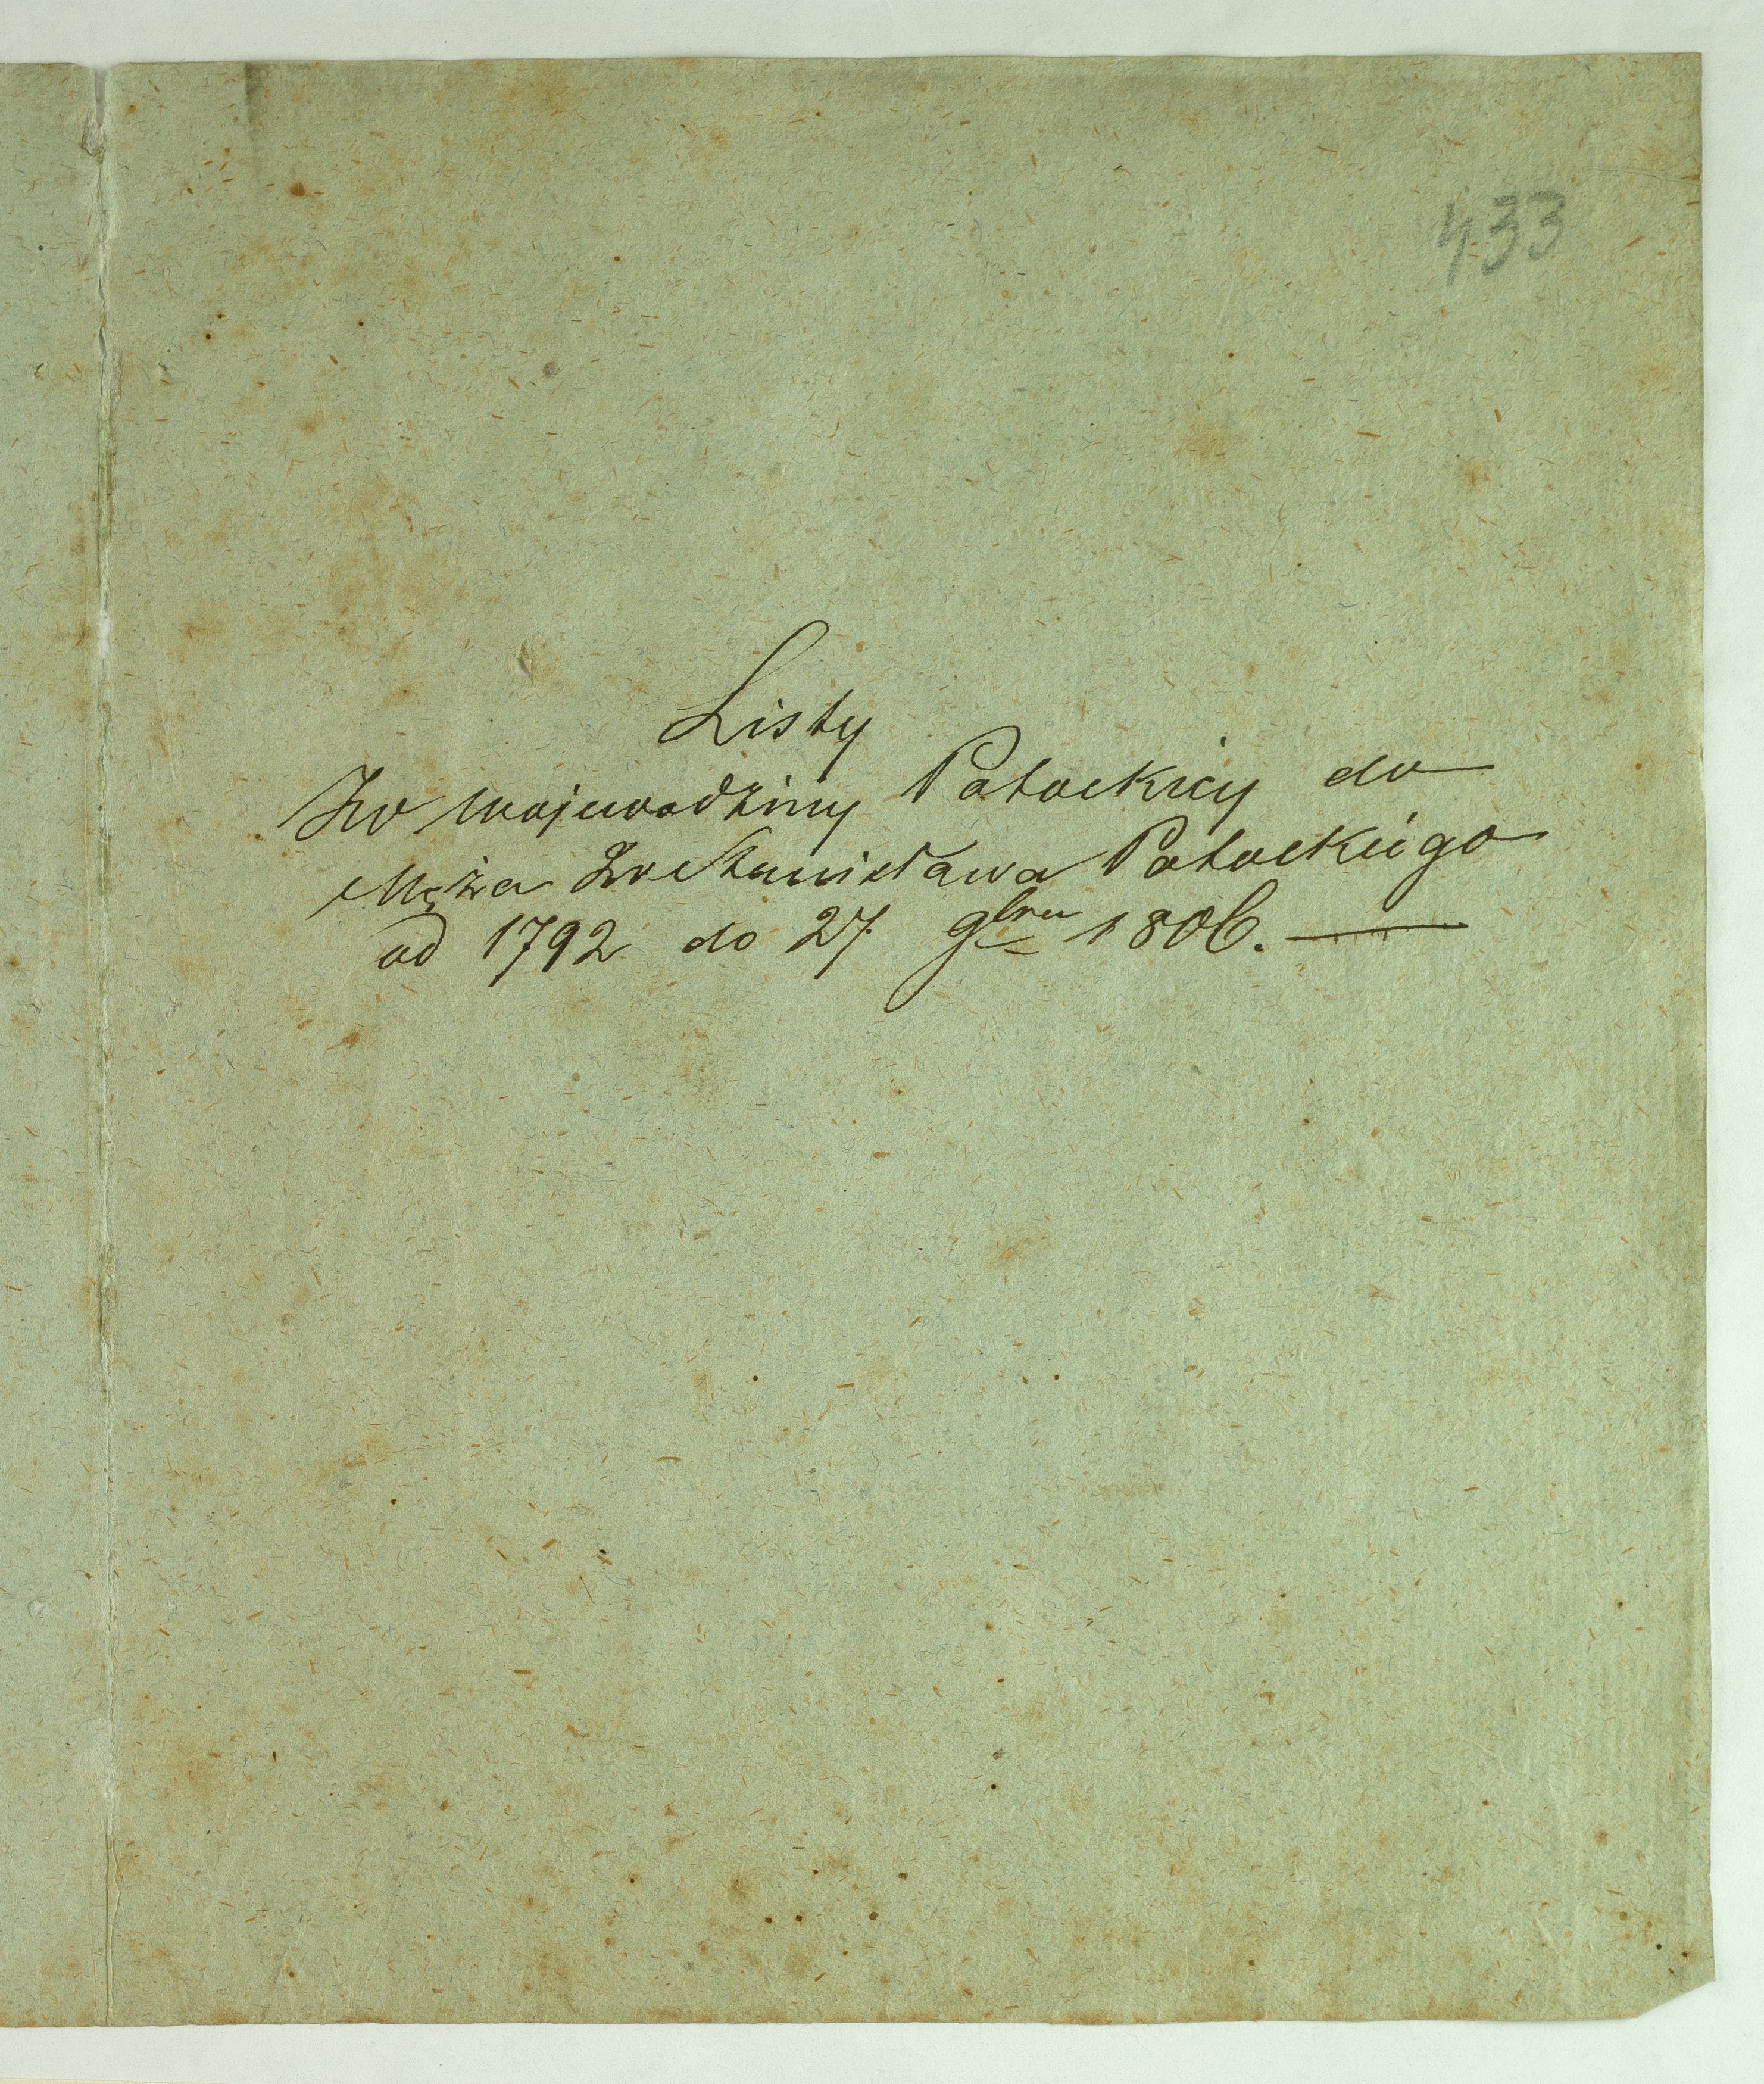 433
Listy
Hr Wojewodziny Potockiey do
Męża Hr Stanisława Potockiego
od 1792 do 27 9bra 1806.